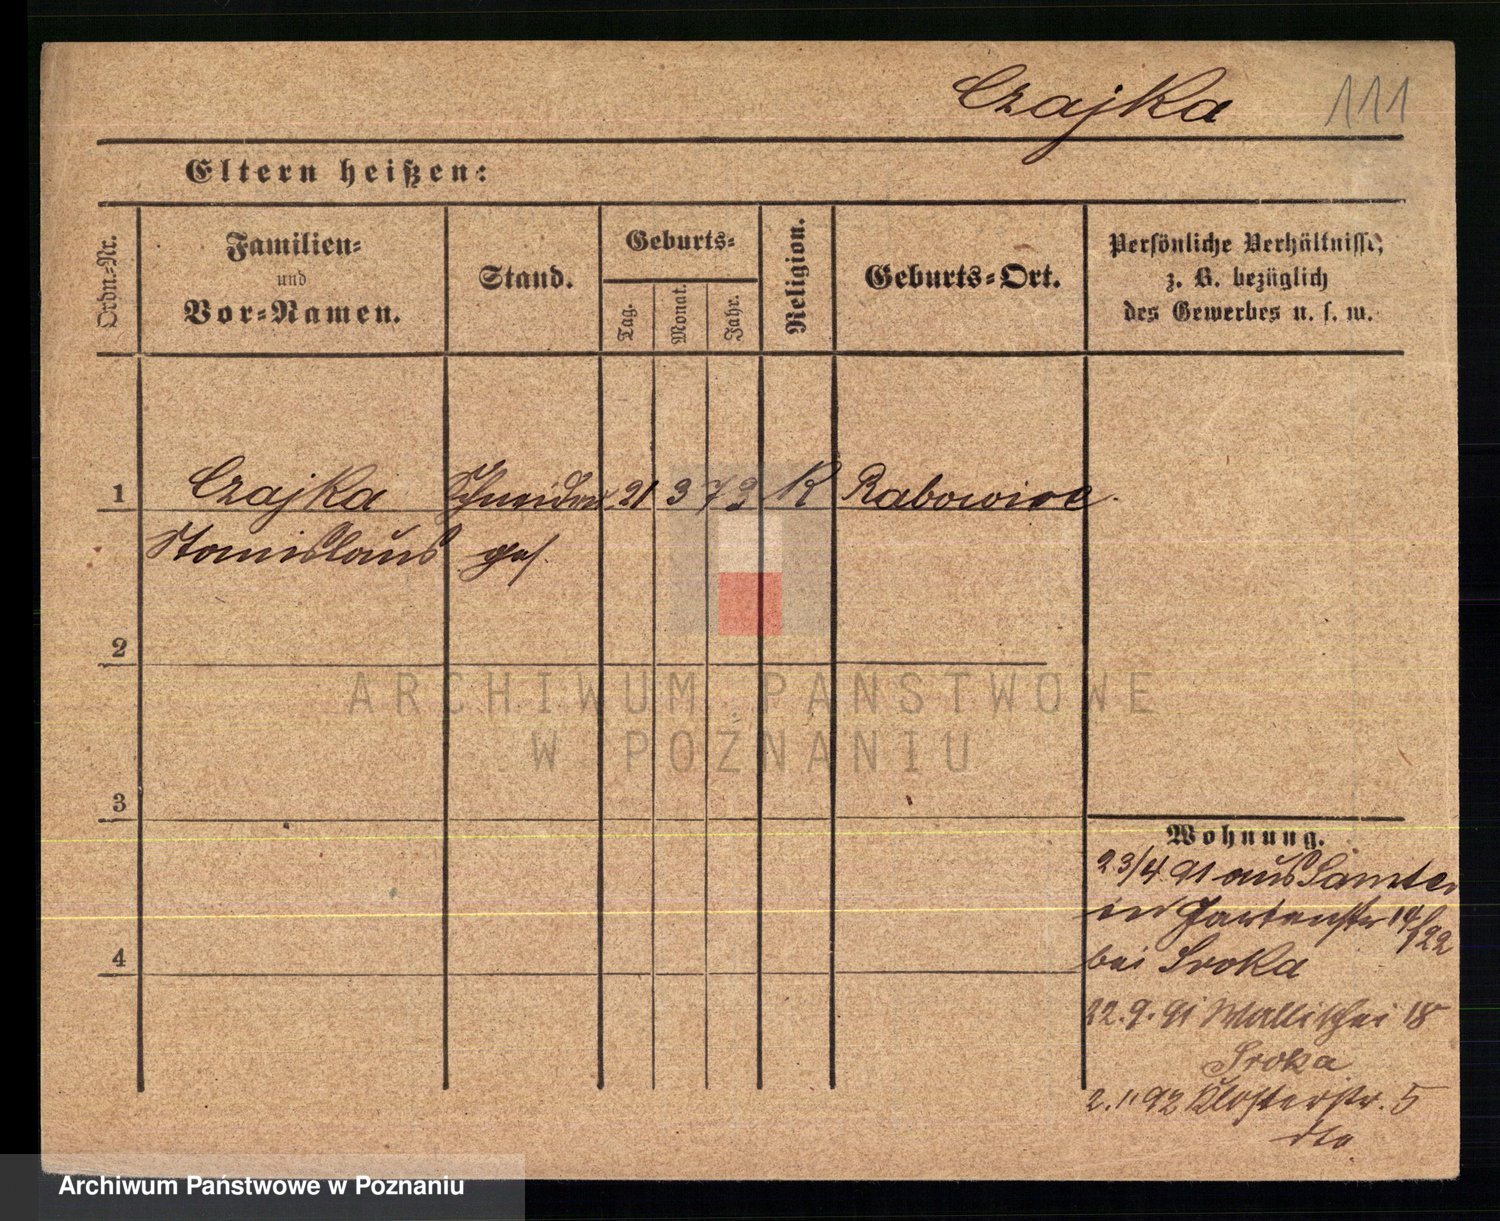 Czajka 111
Eltern heißen:
Ordn.-Nr.
Familien-
und
Vor-Namen.
Stand.
Geburts-
Tag.
Monat.
Jahr.
Religion.
Geburts-Ort.
Persönliche Verhältnisse,
z. B. bezüglich
des Gewerbes u. s. w.
1 Czajka Schneider 21 3 73 K Rabowice
Stanislaus ges.
2
ARCHIWUM PAŃSTWOWE
W POZNANIU
3
Wohnung.
23/4 91 aus Samter
in Gartenstr 14
4
bei Sroka
22.9.91 Wallischei 18
Sroka
2.1.92 Klosterstr. 5
dto
Archiwum Państwowe w Poznaniu